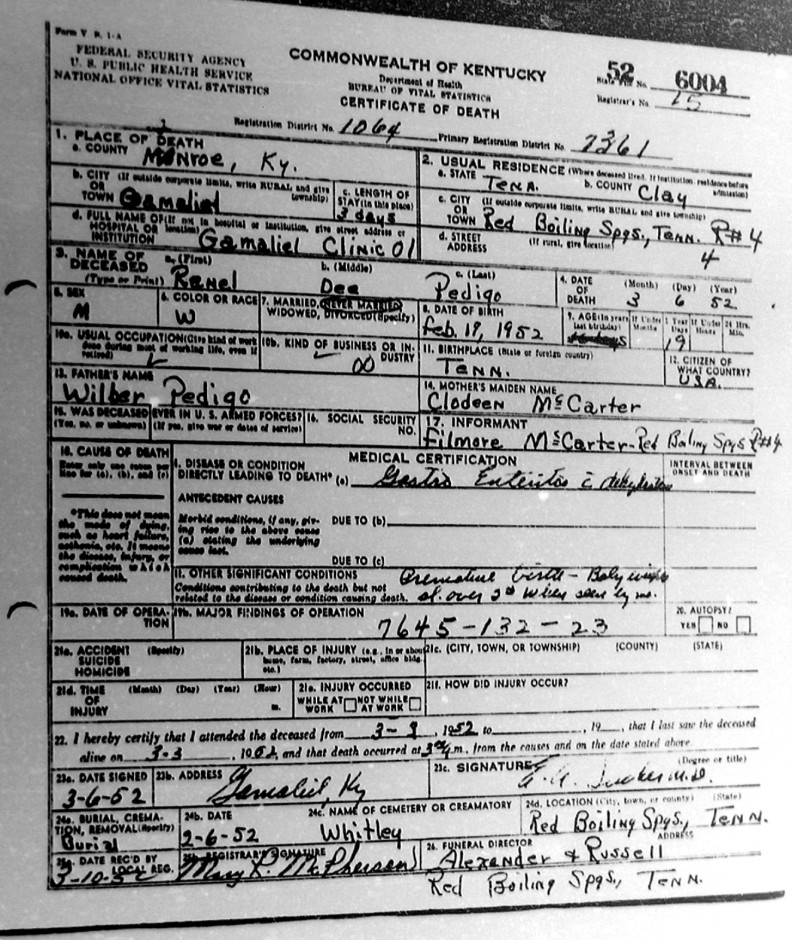 Form V. S. 1-A
FEDERAL SECURITY AGENCY
U. S. PUBLIC HEALTH SERVICE
NATIONAL OFFICE VITAL STATISTICS
COMMONWEALTH OF KENTUCKY
Department of Health
BUREAU OF VITAL STATISTICS
CERTIFICATE OF DEATH
52 6004
State File No.
Registrar's No. 15
Registration District No. 1064 Primary Registration District No. 7361
1. PLACE OF DEATH
a. COUNTY Monroe, Ky.
b. CITY (If outside corporate limits, write RURAL and give township)
OR
TOWN Gamaliel
c. LENGTH OF STAY (in this place)
3 days
d. FULL NAME OF (If not in hospital or institution, give street address or location)
HOSPITAL OR
INSTITUTION Gamaliel Clinic 01
2. USUAL RESIDENCE (Where deceased lived. If institution, residence before admission)
a. STATE Tenn. b. COUNTY Clay
c. CITY (If outside corporate limits, write RURAL and give township)
OR
TOWN Red Boiling Spgs., Tenn. R#4
d. STREET (If rural, give location)
ADDRESS 4
3. NAME OF DECEASED (Type or Print)
a. (First) Renel
b. (Middle) Dee
c. (Last) Pedigo
4. DATE OF DEATH (Month) (Day) (Year)
3 6 52
5. SEX
M
6. COLOR OR RACE
W
7. MARRIED, NEVER MARRIED, WIDOWED, DIVORCED (Specify)
8. DATE OF BIRTH
Feb. 17, 1952
9. AGE (In years last birthday) If Under 1 Year Months Days If Under 24 Hrs. Hours Min.
19
10a. USUAL OCCUPATION (Give kind of work done during most of working life, even if retired)
10b. KIND OF BUSINESS OR INDUSTRY
00
11. BIRTHPLACE (State or foreign country)
Tenn.
12. CITIZEN OF WHAT COUNTRY?
USA
13. FATHER'S NAME
Wilber Pedigo
14. MOTHER'S MAIDEN NAME
Clodeen McCarter
15. WAS DECEASED EVER IN U. S. ARMED FORCES?
(Yes, no, or unknown) (If yes, give war or dates of service)
16. SOCIAL SECURITY NO.
17. INFORMANT
Filmore McCarter-Red Boling Spgs R#4
18. CAUSE OF DEATH
Enter only one cause per line for (a), (b), and (c)
*This does not mean the mode of dying, such as heart failure, asthenia, etc. It means the disease, injury, or complication which caused death.
MEDICAL CERTIFICATION
INTERVAL BETWEEN ONSET AND DEATH
I. DISEASE OR CONDITION
DIRECTLY LEADING TO DEATH* (a) Gastro Enteritis c̄ dehydration
ANTECEDENT CAUSES
Morbid conditions, if any, giving rise to the above cause (a) stating the underlying cause last.
DUE TO (b)
DUE TO (c)
II. OTHER SIGNIFICANT CONDITIONS
Conditions contributing to the death but not related to the disease or condition causing death.
Premature birth - Baby weighed
sl. over 3# when seen by me.
19a. DATE OF OPERATION
19b. MAJOR FINDINGS OF OPERATION
7645-132-23
20. AUTOPSY?
YES NO
21a. ACCIDENT (Specify)
SUICIDE
HOMICIDE
21b. PLACE OF INJURY (e.g., in or about home, farm, factory, street, office bldg. etc.)
21c. (CITY, TOWN, OR TOWNSHIP) (COUNTY) (STATE)
21d. TIME OF INJURY (Month) (Day) (Year) (Hour) m.
21e. INJURY OCCURRED
WHILE AT WORK NOT WHILE AT WORK
21f. HOW DID INJURY OCCUR?
22. I hereby certify that I attended the deceased from 3-3, 1952 to , 19 , that I last saw the deceased
alive on 3-3, 1952, and that death occurred at m., from the causes and on the date stated above.
23a. DATE SIGNED
3-6-52
23b. ADDRESS
Gamaliel, Ky
23c. SIGNATURE (Degree or title)
Tucker M.D.
24a. BURIAL, CREMATION, REMOVAL (Specify)
Burial
24b. DATE
2-6-52
24c. NAME OF CEMETERY OR CREAMATORY
Whitley
24d. LOCATION (City, town, or county) (State)
Red Boiling Spgs., Tenn.
25a. DATE REC'D BY LOCAL REG.
3-10-52
25b. REGISTRAR'S SIGNATURE
Mary K. McPherson
26. FUNERAL DIRECTOR ADDRESS
Alexander & Russell
Red Boiling Spgs., Tenn.